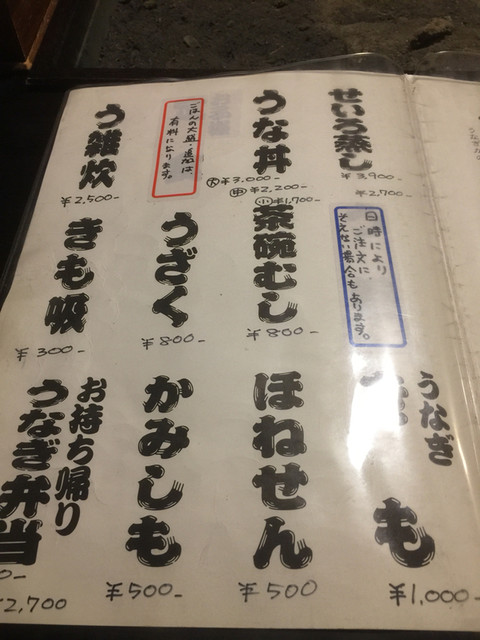 せいろ蒸し
¥3,900-
¥2,700-
うな丼
大¥3,000-
中¥2,200-
小¥1,700-
ごはんの大盛・追加は、
有料になります。
う雑炊
¥2,500-
日時により
ご注文に
そえない場合もあります。
茶碗むし
¥800-
うざく
¥800-
きも吸
¥300-
うなぎ
も
¥1,000-
ほねせん
¥500
かみしも
¥500-
お持ち帰り
うなぎ弁当
¥2,700